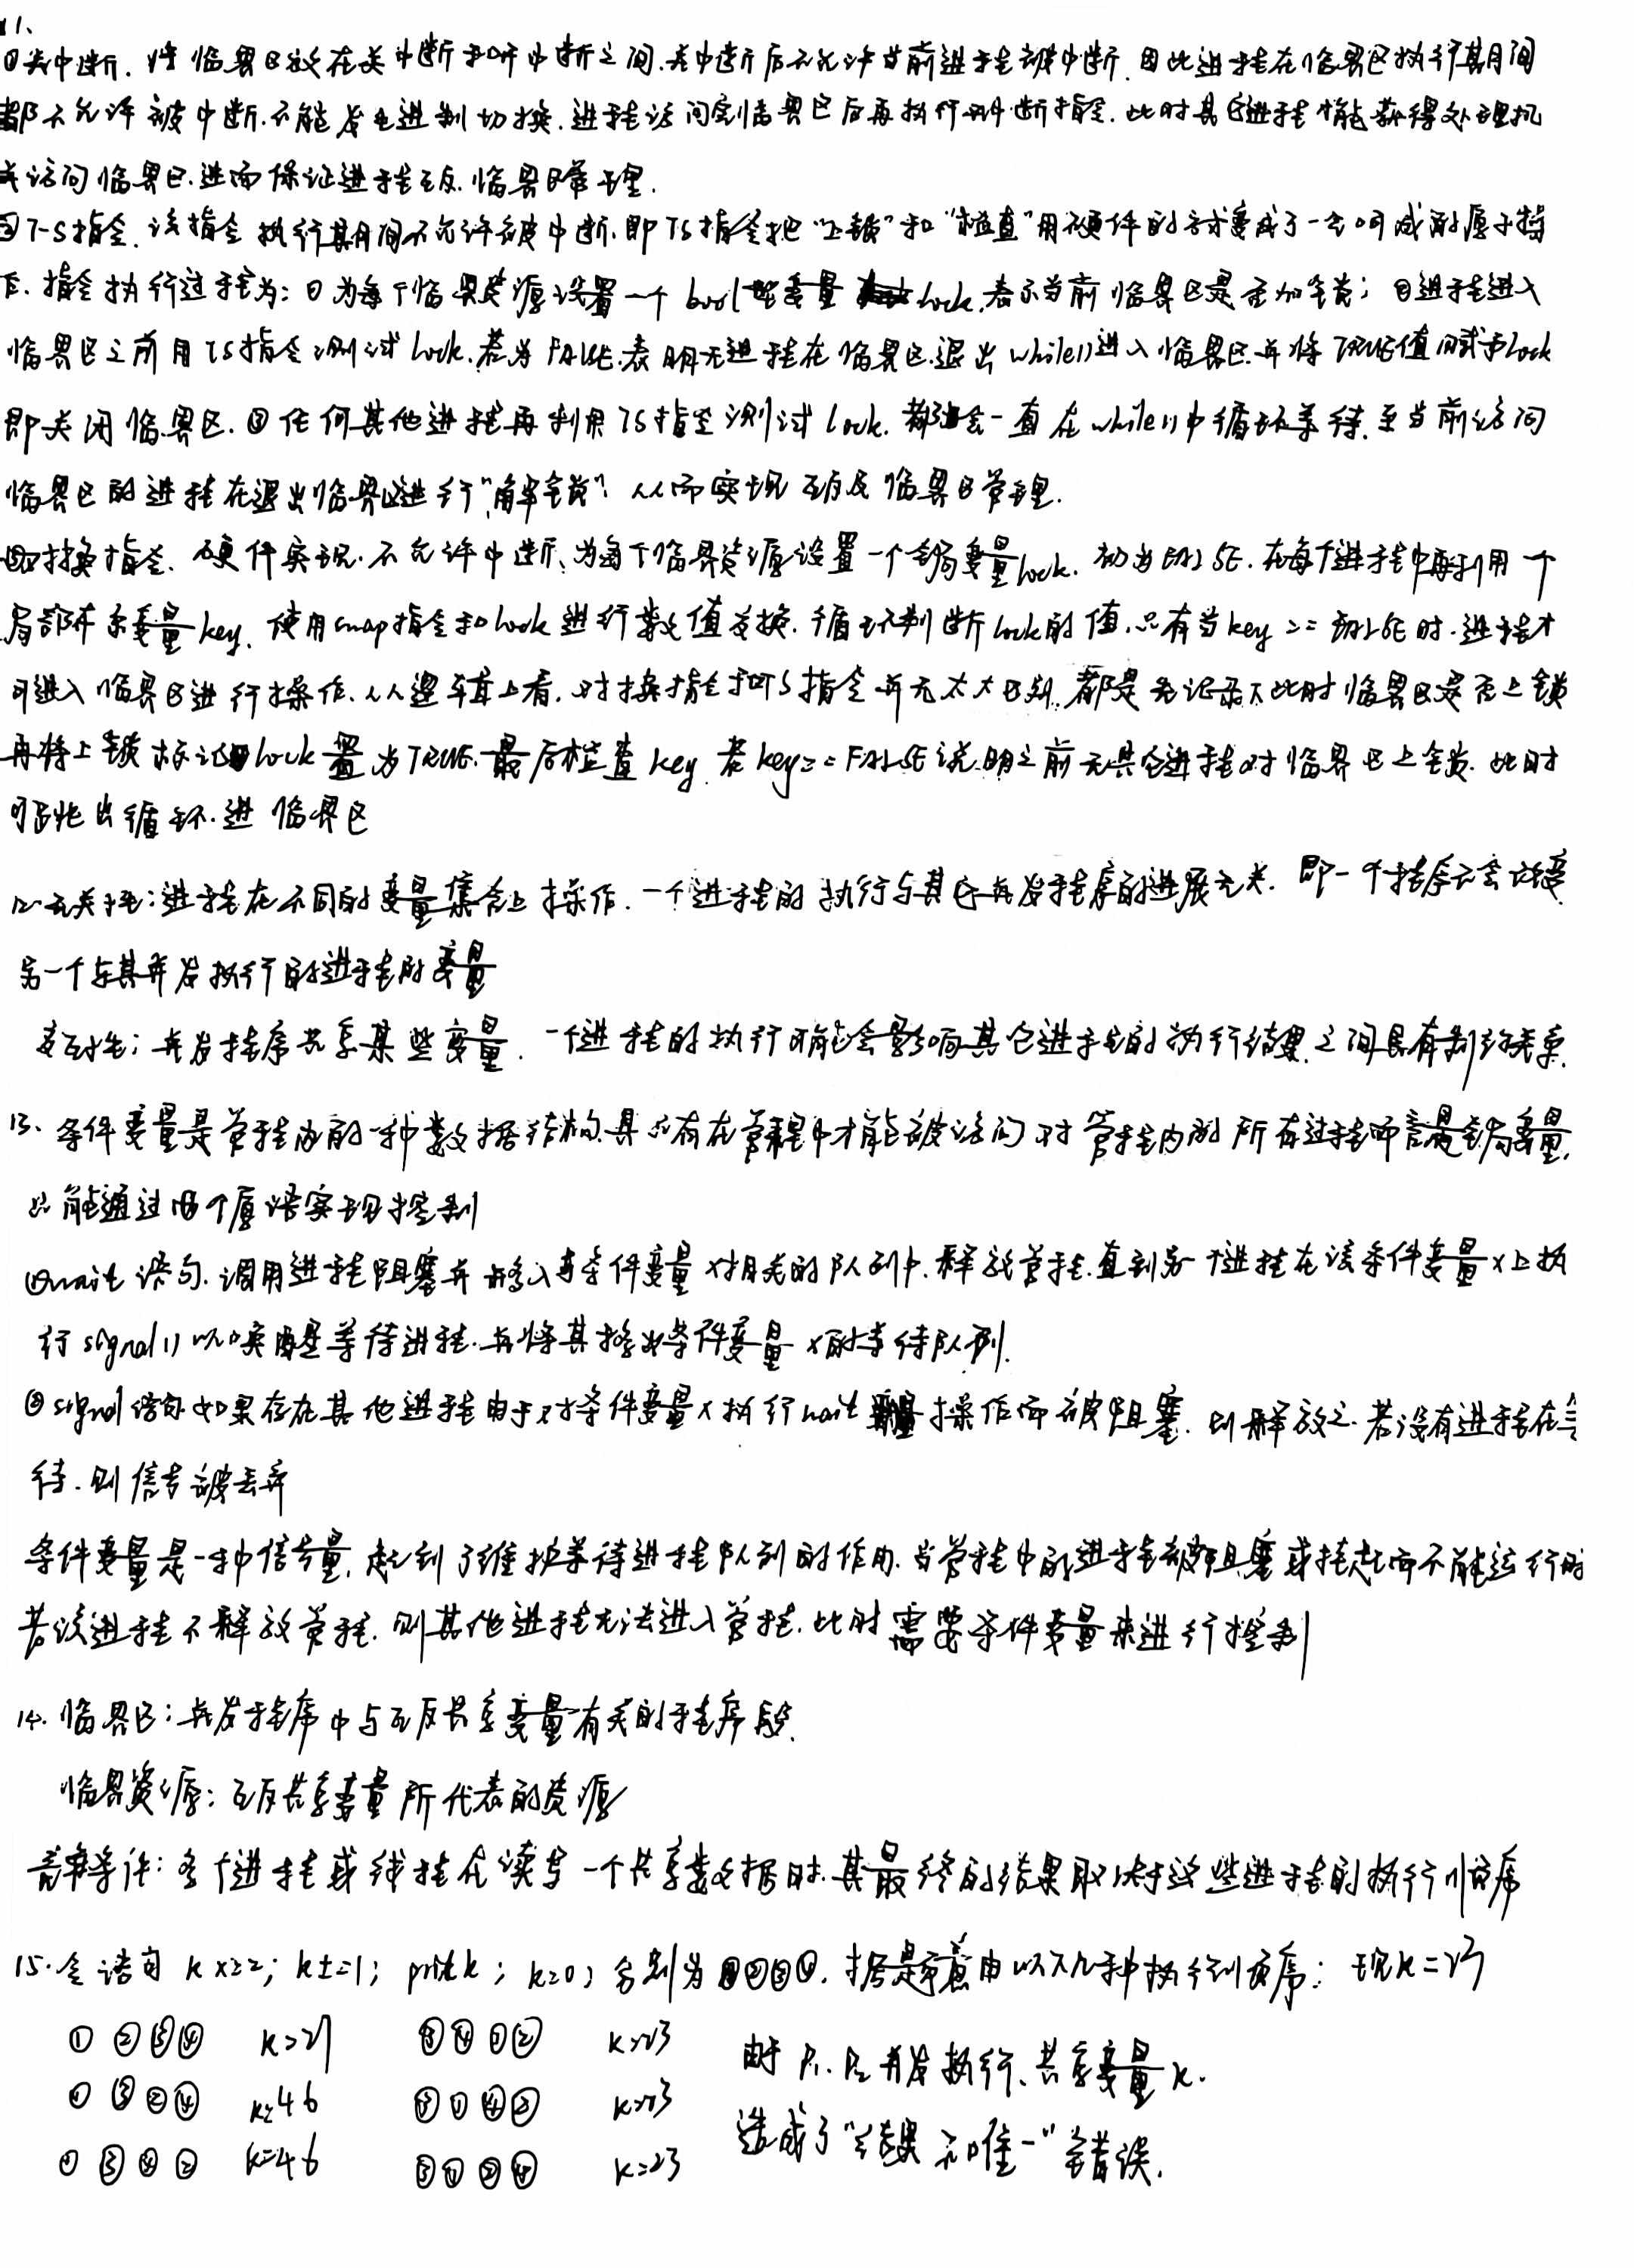 11、
①关中断. 将临界区放在关中断和开中断之间.关中断后不允许当前进程被中断.因此进程在临界区执行其月间
都不允许被中断.不能发生进制切换.进程访问完临界区后再执行开中断指令.此时其它进程才能获得处理机
并访问临界区.进而保证进程互斥.临界区管理.
②T-S指令.该指令执行其月间不允许被中断.即TS指令把“上锁”和“检查”用硬件的方式变成了一去可减的原子操
作.指令执行过程为:①为每个临界资源设置一个bool型变量lock.表示当前临界区是否加锁;②进程进入
临界区之前用TS指令测试lock.若为FALSE.表明无进程在临界区.退出while()进入临界区.并将TRUE值赋予lock
即关闭临界区.③任何其他进程再利用TS指令测试lock.都会一直在while()中循环等待.至当前访问
临界区的进程在退出临界区进行“解锁”.从而实现互斥及临界区管理.
③对换指令.硬件实现.不允许中断、为每个临界资源设置一个全局变量lock.初为FALSE.在每个进程中再利用一个
局部布尔变量key.使用swap指令和lock进行数值交换.循环判断lock的值.只有当key==FALSE时.进程才
可进入临界区进行操作.从逻辑上看.对换指令和TS指令并无太大区别.都是先记录下此时临界区是否上锁
再将上锁标记lock置为TRUE.最后检查key.若key==FALSE说明之前无其它进程对临界区上锁.此时
可跳出循环.进临界区
12.无关性:进程在不同的变量集合上操作.一个进程的执行与其它并发程序的进展无关.即一个程序不会改变
另一个与其并发执行的进程的变量
交互性:并发程序共享某些变量.一个进程的执行可能会影响其它进程的执行结果.之间具有制约关系.
13、条件变量是管程内的一种数据结构.其只有在管程中才能被访问.对管程内的所有过程而言是全局变量.
只能通过两个原语实现控制
①wait语句.调用进程阻塞并移入与条件变量x相关的队列中.释放管程.直到另一个进程在该条件变量x上执
行signal()以唤醒等待进程.并将其移出条件变量x的等待队列.
②signal语句如果存在其他进程由于对条件变量x执行wait操作而被阻塞.则释放之.若没有进程在等
待.则信号被丢弃
条件变量是一种信号量,起到了维护等待进程队列的作用.当管程中的进程被阻塞或挂起而不能运行时
若该进程不释放管程.则其他进程无法进入管程.此时需要条件变量来进行控制
14.临界区:并发程序中与互斥共享变量有关的程序段.
临界资源:互斥共享变量所代表的资源
竞争条件:多个进程或线程在读写一个共享数据时.其最终的结果取决于这些进程的执行顺序
15.令语句k×=2;k+=1;print k;k=0;分别为①②③④.据题意由以下几种执行顺序:现k=23
①②③④ k=47 ③④①② k=23
①③②④ k=46 ③①④② k=23
①③④② k=46 ③①②④ k=23
由于P₁.P₂并发执行、共享变量k.
造成了“结果不唯一”错误.